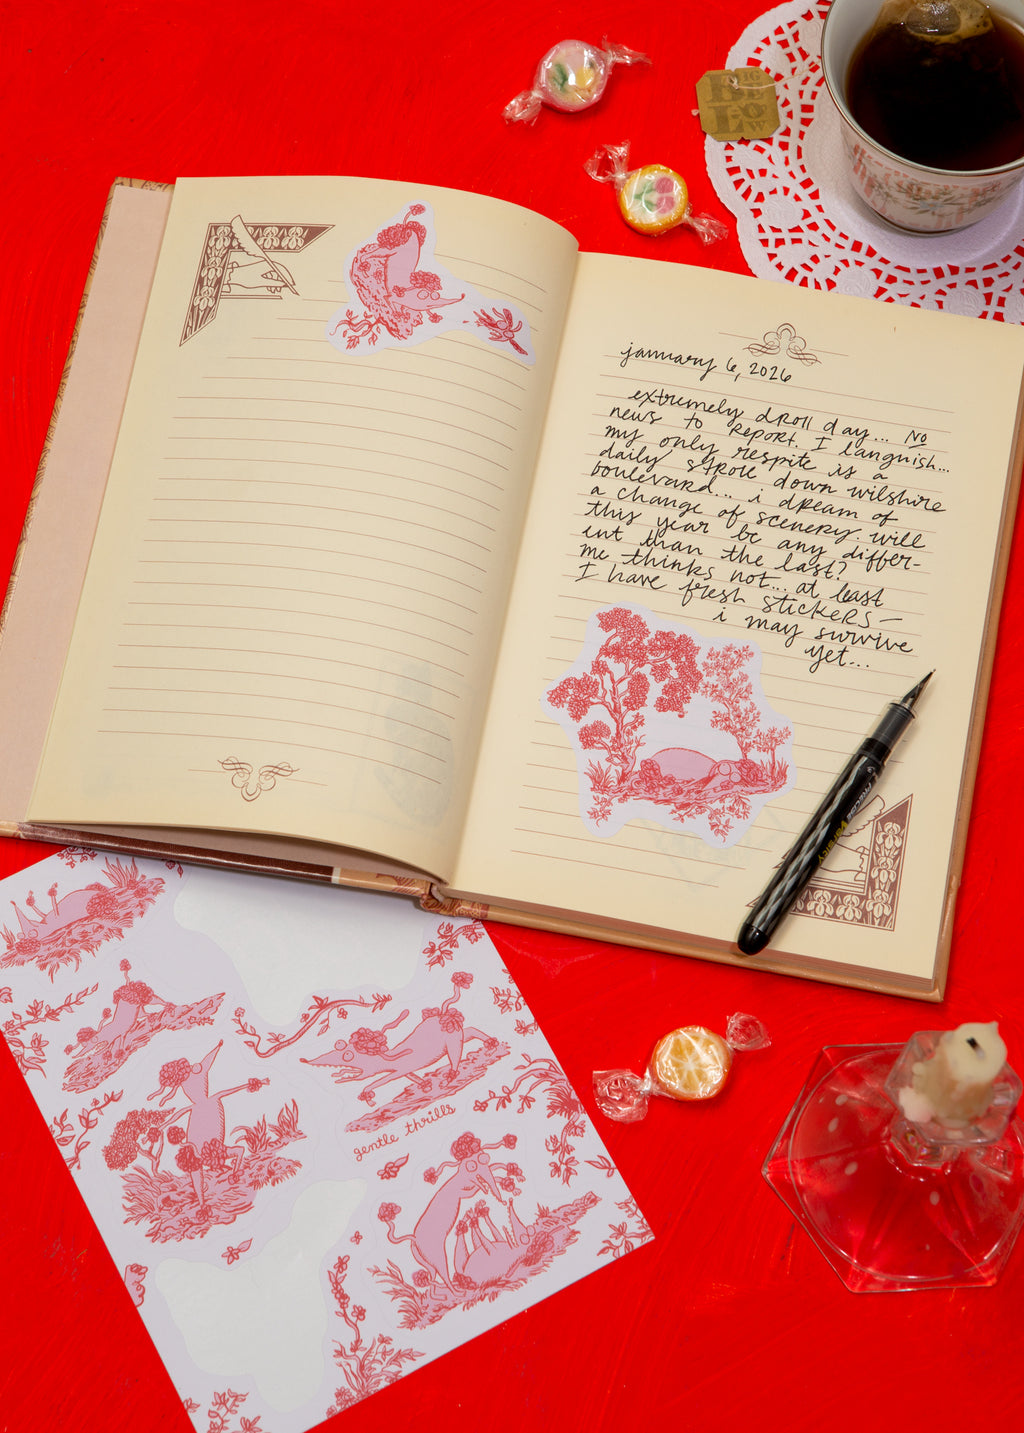 BIGE
LOW
january 6, 2026
extremely droll day... No
news to report. I languish...
my only respite is a
daily stroll down wilshire
boulevard... i dream of
a change of scenery. will
this year be any differ-
ent than the last?
me thinks not... at least
I have fresh stickers—
i may survive
yet...
gentle thrills